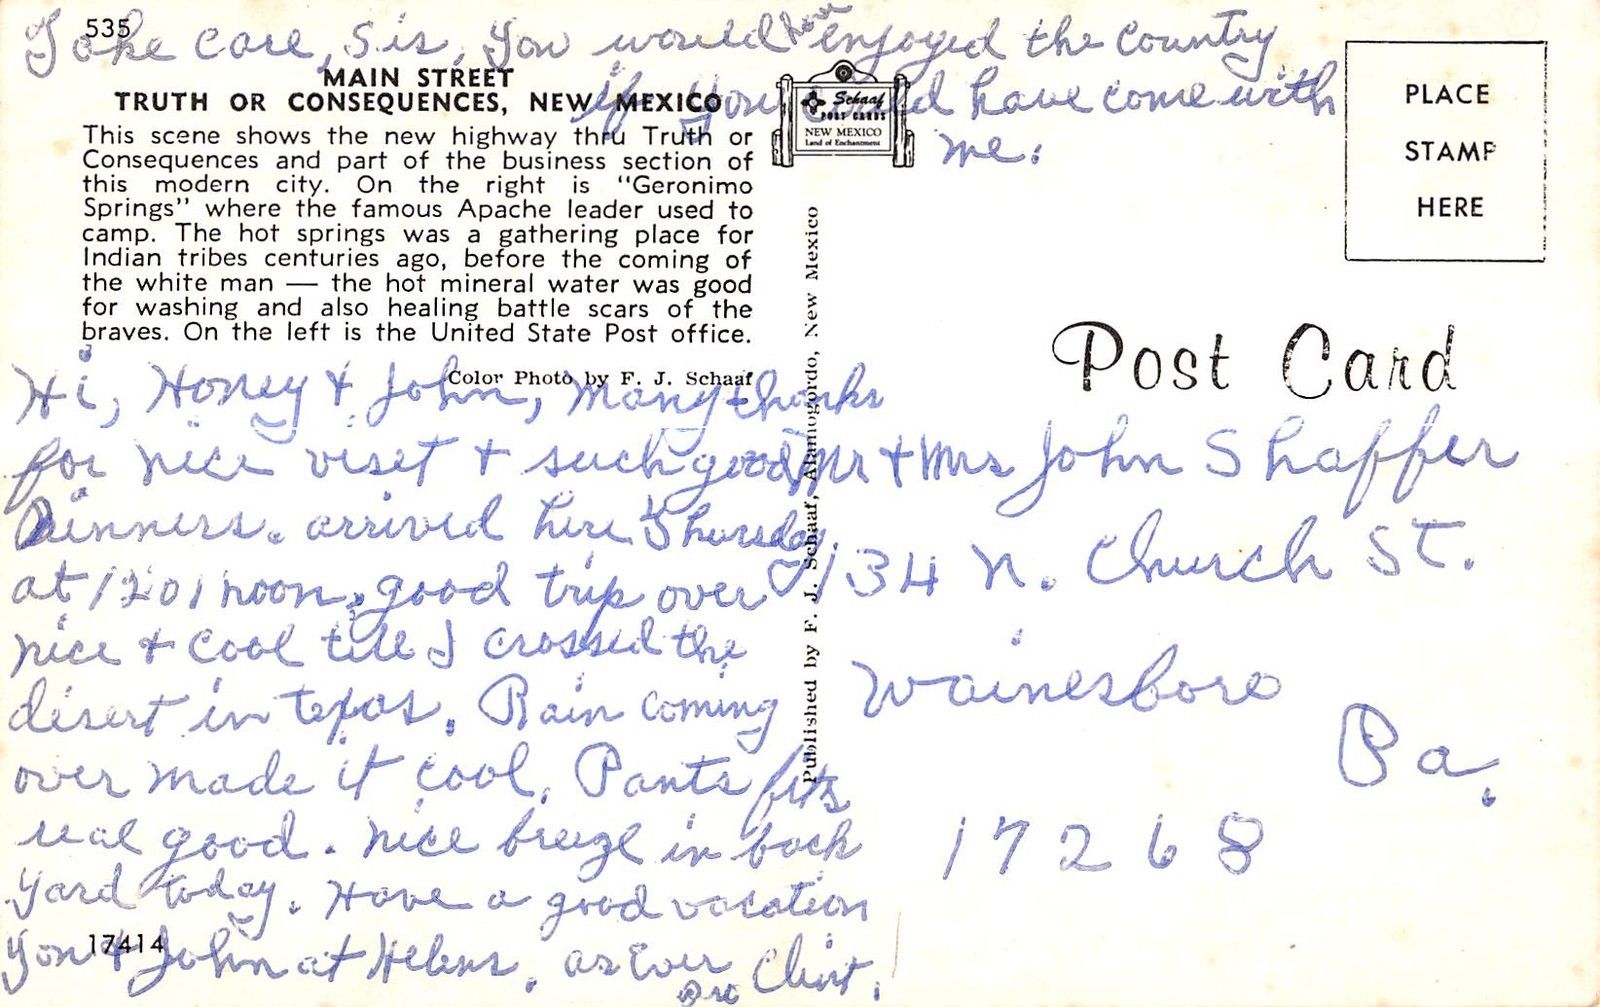 535
Take Care, Sis, You would have enjoyed the Country
if you could have come with
me.
MAIN STREET
TRUTH OR CONSEQUENCES, NEW MEXICO
This scene shows the new highway thru Truth or
Consequences and part of the business section of
this modern city. On the right is "Geronimo
Springs" where the famous Apache leader used to
camp. The hot springs was a gathering place for
Indian tribes centuries ago, before the coming of
the white man — the hot mineral water was good
for washing and also healing battle scars of the
braves. On the left is the United State Post office.
Color Photo by F. J. Schaaf
Schaaf
POST CARDS
NEW MEXICO
Land of Enchantment
PLACE
STAMP
HERE
Post Card
Hi, Honey & John, Many thanks
for nice viset & such good
Dinners. arrived here Thursday
at 1201 noon, good trip over
nice & cool till I crossed the
desert in Texas. Rain coming
over made it cool. Pants fits
real good. nice breeze in back
yard today. Have a good vacation
You & John at Helens. as Ever
Bro Clint.
17414
Published by F. J. Schaaf, Alamogordo, New Mexico
Mr & Mrs John Shaffer
134 N. Church St.
Wainesboro
Pa.
17268